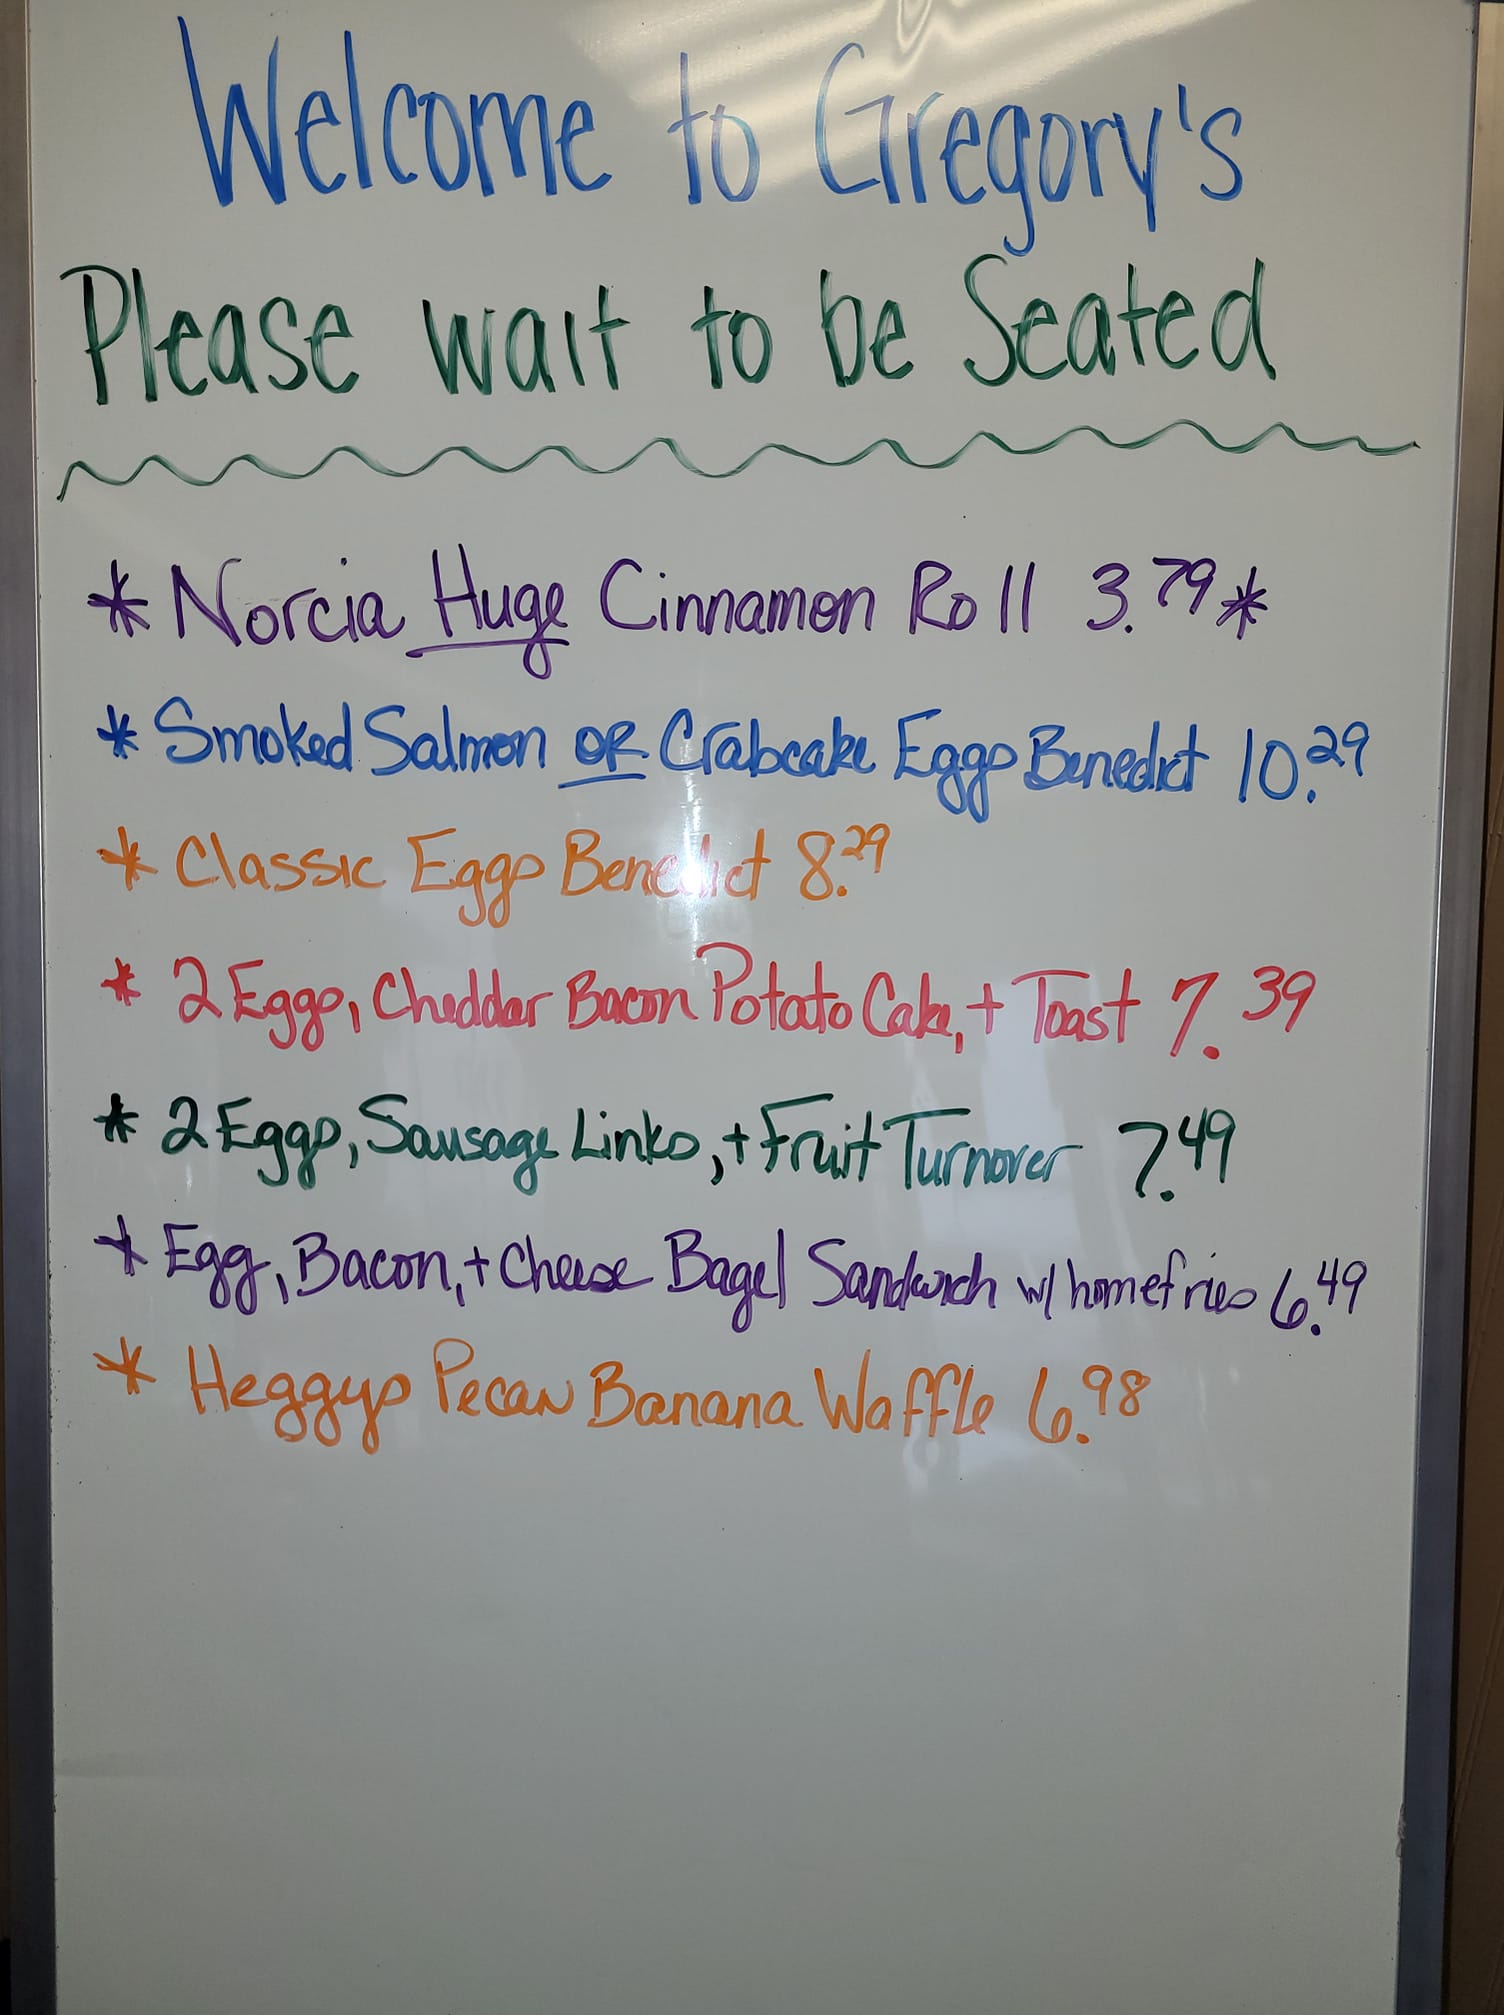 Welcome to Gregory's
Please wait to be Seated
* Norcia Huge Cinnamon Roll 3.79 *
* Smoked Salmon OR Crabcake Eggs Benedict 10.29
* Classic Eggs Benedict 8.29
* 2 Eggs, Cheddar Bacon Potato Cake, + Toast 7.39
* 2 Eggs, Sausage Links, + Fruit Turnover 7.49
* Egg, Bacon, + Cheese Bagel Sandwich w/ homefries 6.49
* Heggys Pecan Banana Waffle 6.98